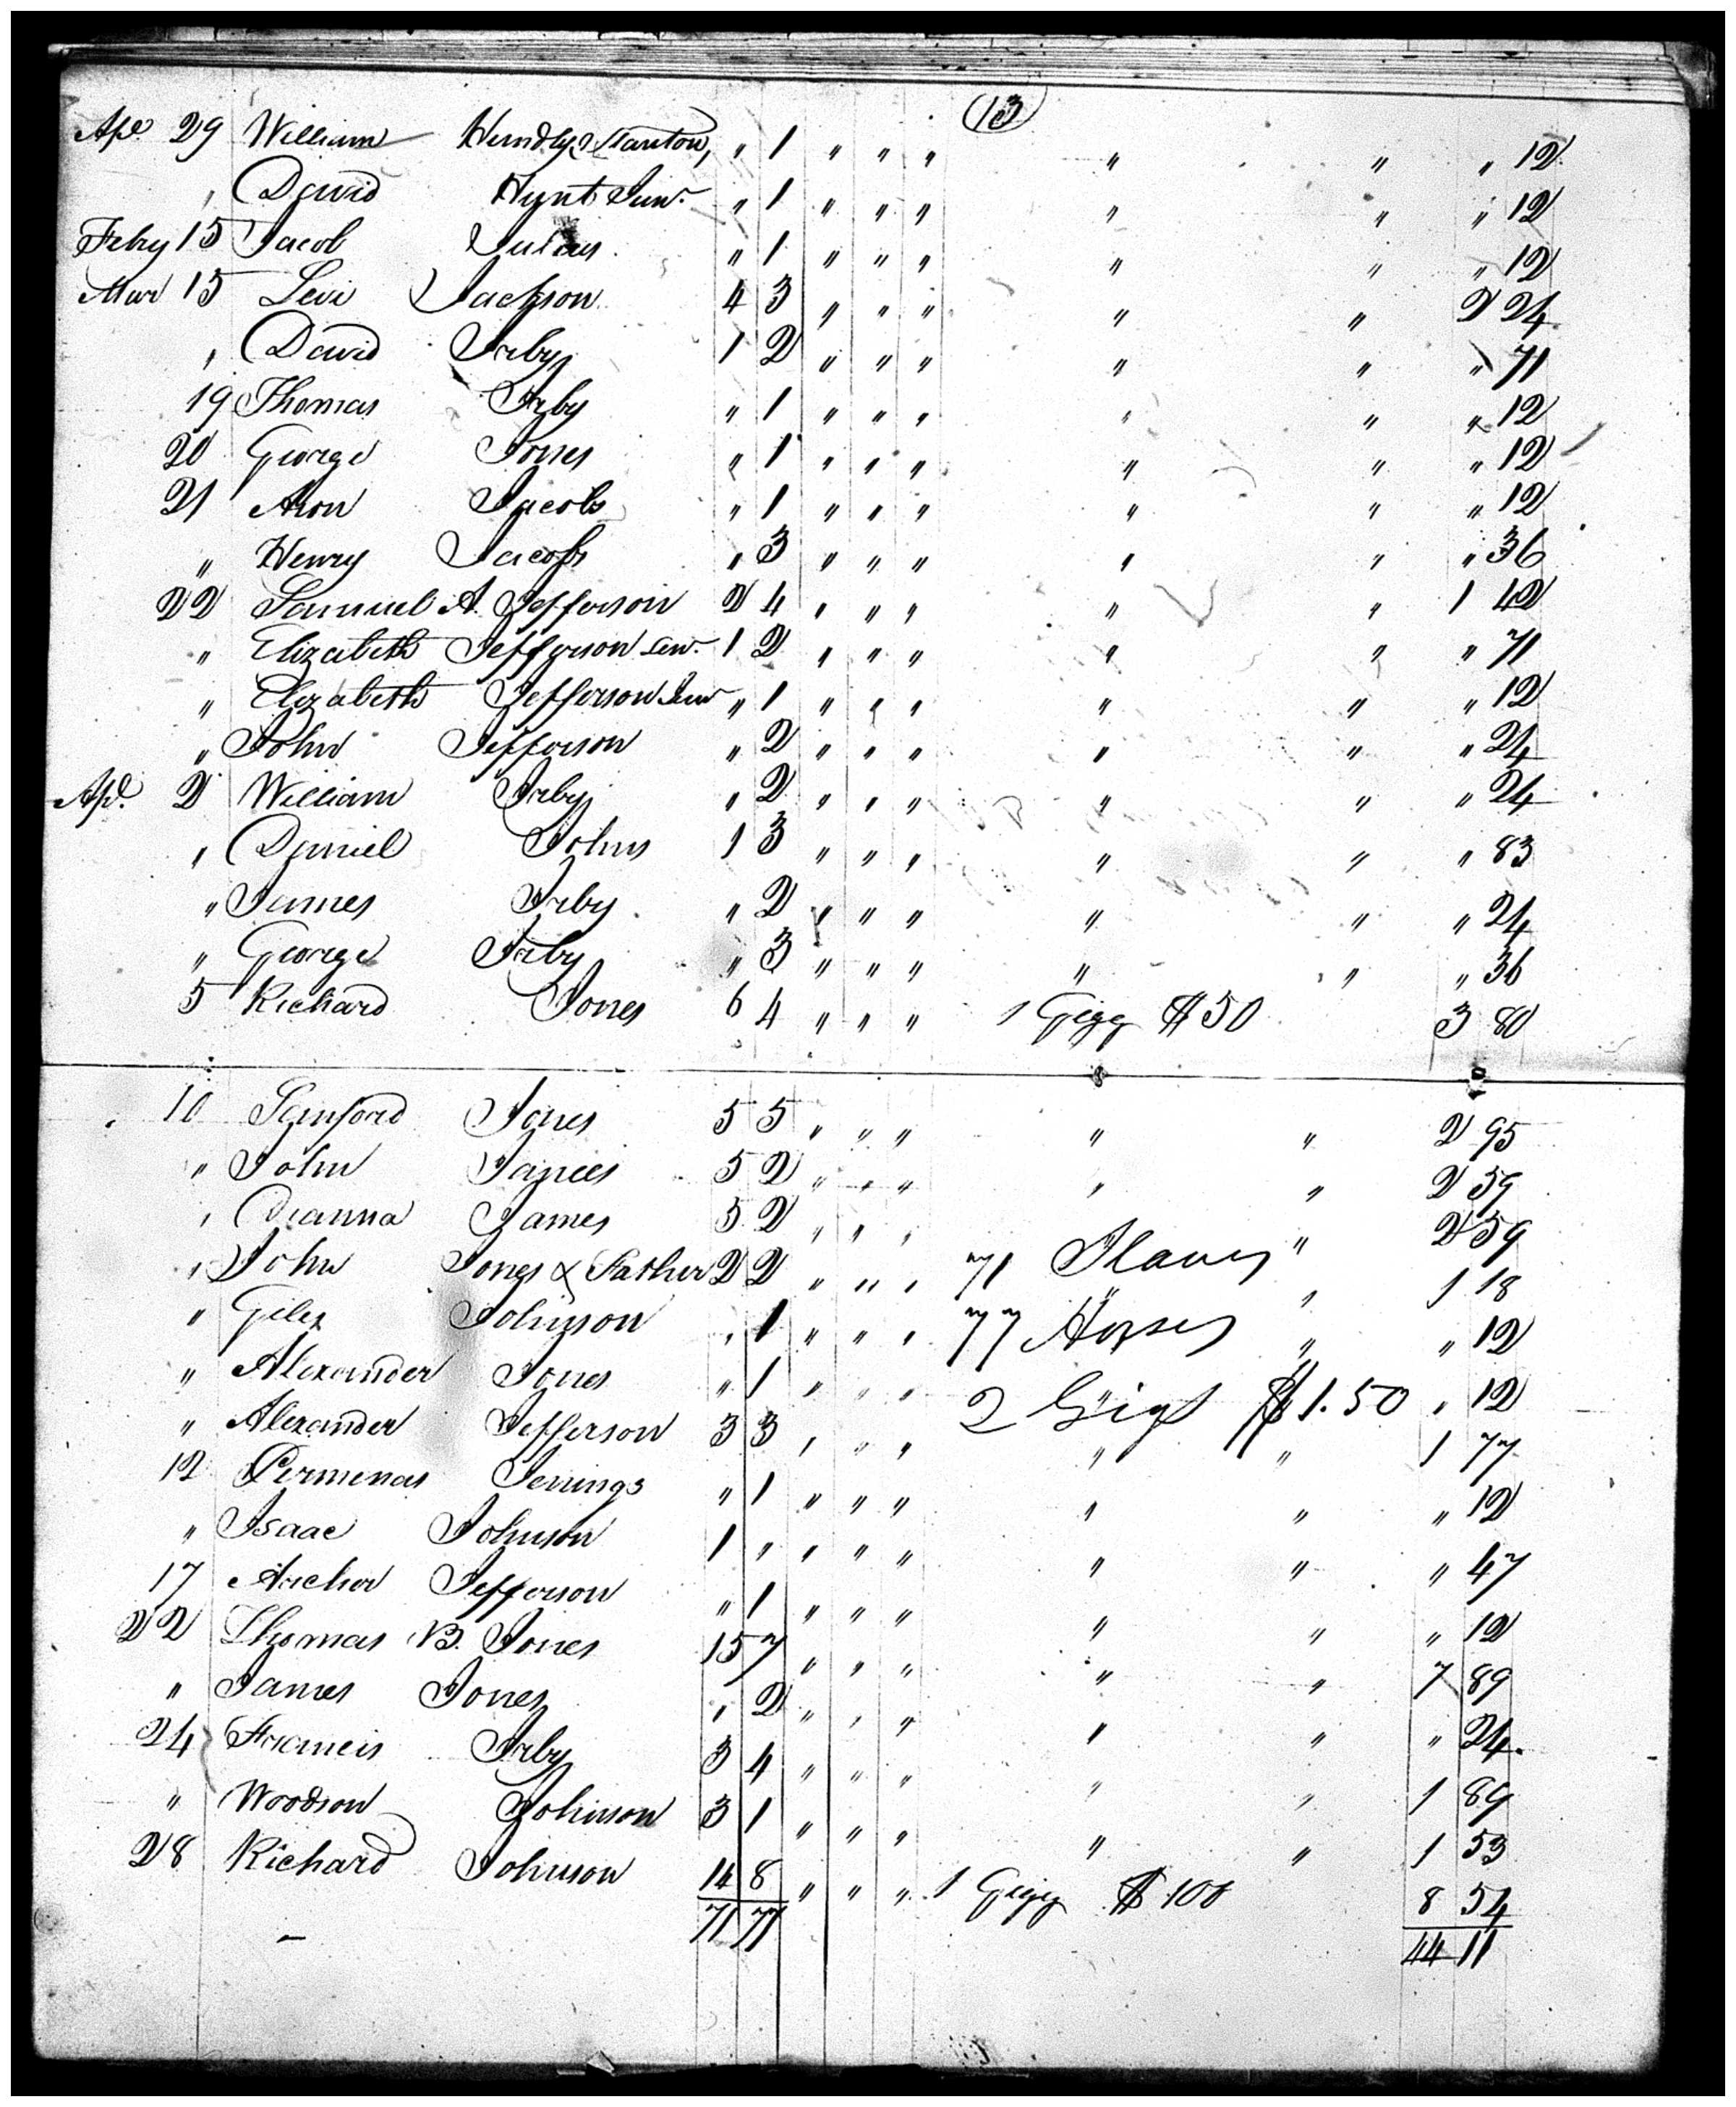 (13)
Apl. 29 William Hundley Stanton, " 1 " " " " " " 12
" David Hynt Jun. " 1 " " " " " " 12
Feby 15 Jacob " 1 " " " " " " 12
Mar 15 Levi Jackson 4 3 " " " " " 2 24
" David Irby 1 2 " " " " " " 71
19 Thomas Irby " 1 " " " " " " 12
20 George Jones " 1 " " " " " " 12
21 Aron Jacobs " 1 " " " " " " 12
" Henry Jacobs " 3 " " " " " " 36
22 Samuel A. Jefferson 2 4 " " " " " 1 42
" Elizabeth Jefferson Sen. 1 2 " " " " " " 71
" Elizabeth Jefferson Jun " 1 " " " " " " 12
" John Jefferson " 2 " " " " " " 24
Apl. 2 William Irby " 2 " " " " " " 24
" Daniel Johns 1 3 " " " " " " 83
" James Irby " 2 " " " " " " 24
" George Irby " 3 " " " " " " 36
5 Richard Jones 6 4 " " " 1 Gigg $50 3 80
10 Sanford Jones 5 5 " " " " " 2 95
" John James 5 2 " " " " " 2 59
" Dianna James 5 2 " " " " 2 59
" John Jones & Father 2 2 " " " 71 Slaves " 1 18
" Giles Johnson " 1 " " " 77 Horses " " 12
" Alexander Jones " 1 " " " 2 Gigs $1.50 " 12
" Alexander Jefferson 3 3 " " " " " 1 77
12 Permenas Jenings " 1 " " " " " " 12
" Isaac Johnson 1 " " " " " " " 47
17 Archer Jefferson " 1 " " " " " " 12
22 Thomas B. Jones 15 7 " " " " " 7 89
" James Jones " 2 " " " " " " 24
24 Francis Irby 3 4 " " " " " 1 89
" Woodson Johnson 3 1 " " " " " 1 53
28 Richard Johnson 14 8 " " " 1 Gigg $100 8 54
71 77 44 11